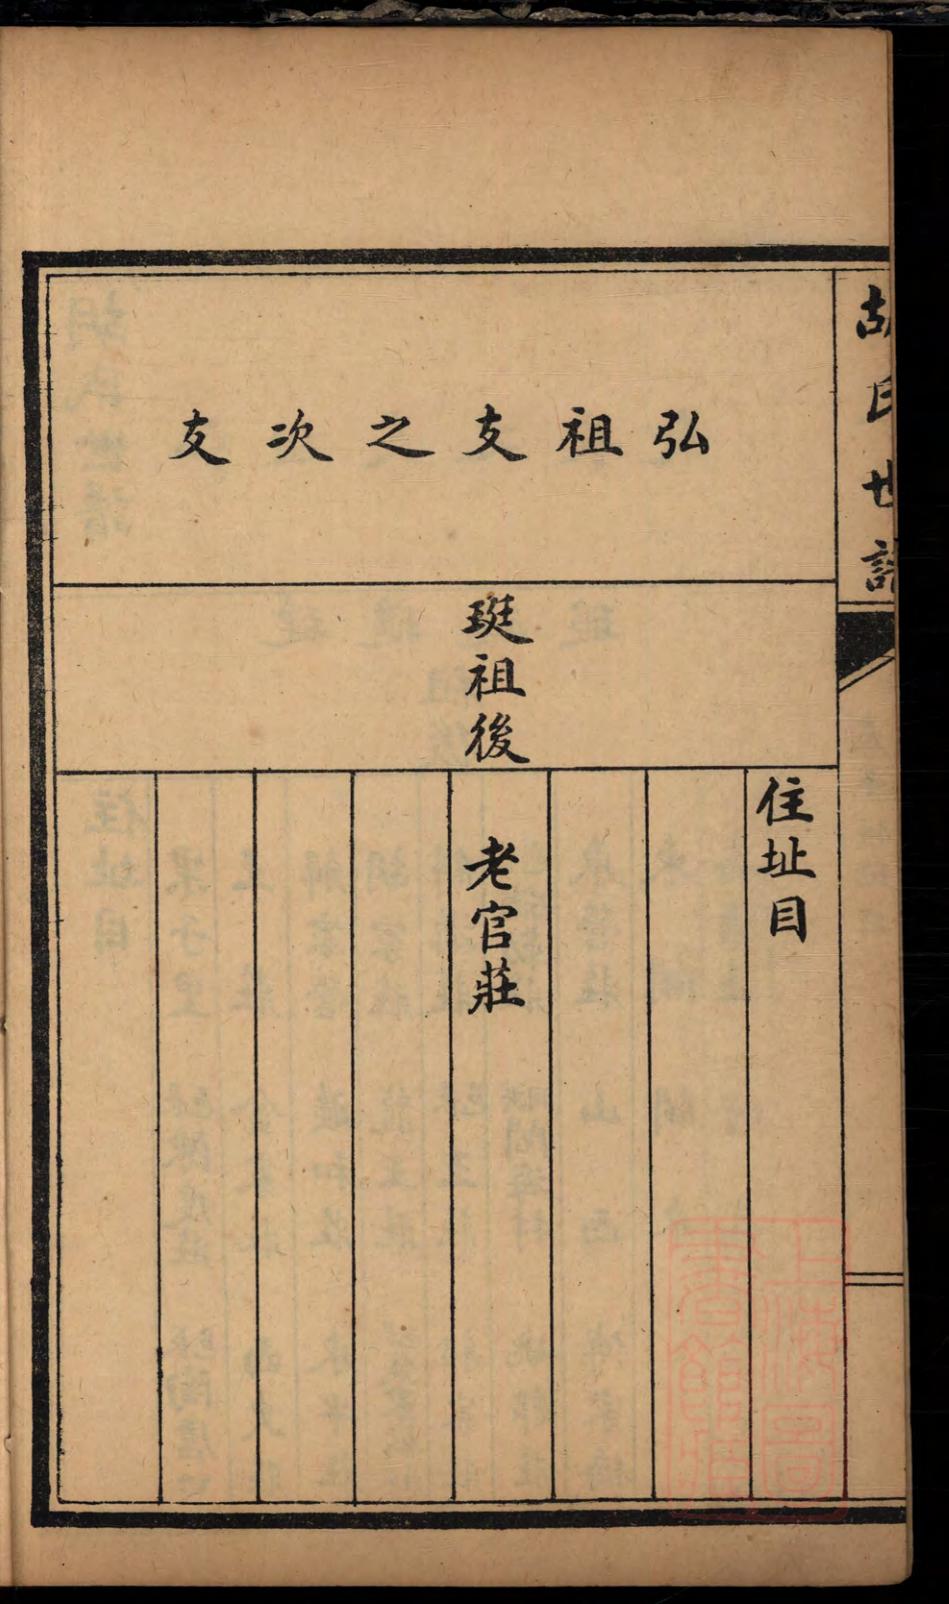 胡氏世譜
弘祖支之次支
珽祖後
住址目
老官莊
上海圖書館藏